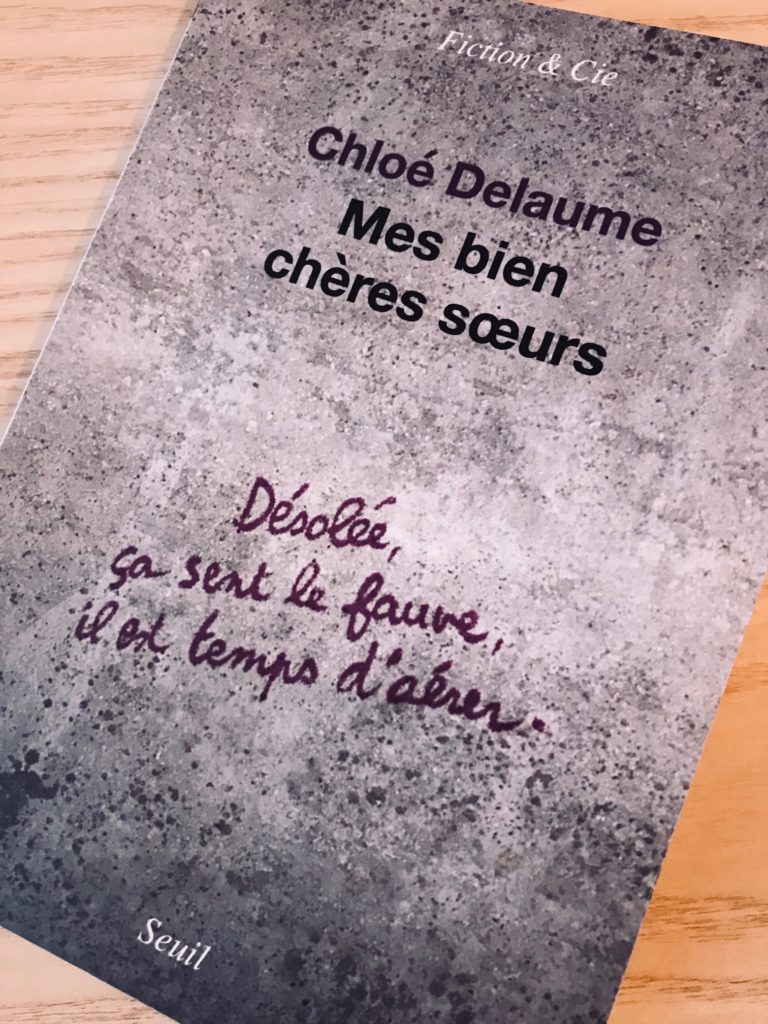 Fiction & Cie
Chloé Delaume
Mes bien
chères sœurs
Désolée,
ça sent le fauve,
il est temps d'aérer.
Seuil